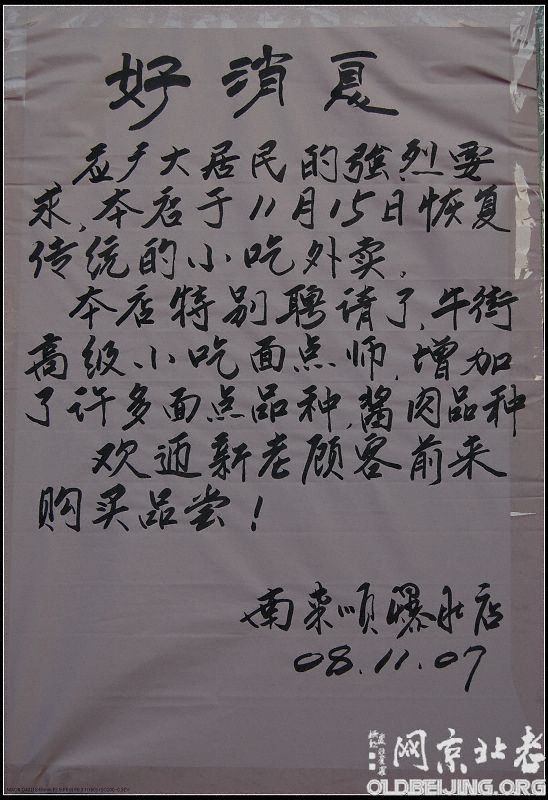 好消夏
应广大居民的強烈要
求,本店于11月15日恢复
传统的小吃外卖.
本店特别聘请了,牛街
高级小吃面点师,增加
了许多面点品种,酱肉品种
欢迎新老顾客前来
购买品尝!
南来顺爆肚店
08.11.07
老北京网
OLDBEIJING.ORG